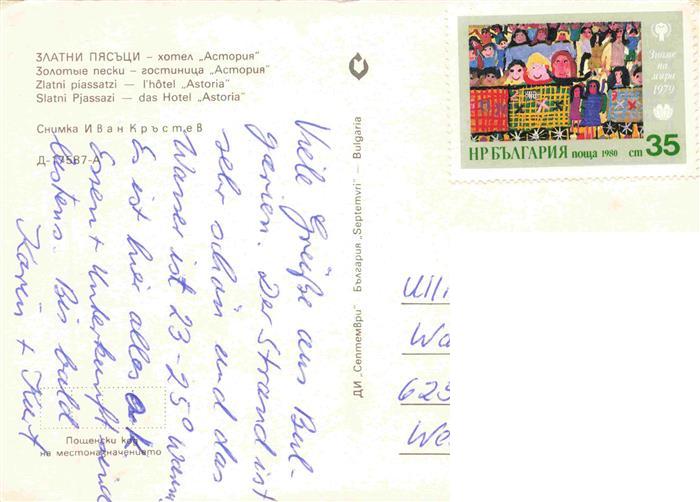 ЗЛАТНИ ПЯСЪЦИ – хотел „Астория“
Золотые пески – гостиница „Астория“
Zlatni piassatzi — l'hôtel „Astoria“
Slatni Pjassazi — das Hotel „Astoria“
Снимка Иван Кръстев
Д-17587-А
Viele Grüße aus Bul-
garien. Der Strand ist
sehr schön und das
Wasser ist 23-25° warm
Es ist hier alles ok
Essen + Unterkunft sind
bestens. Bis bald
Karin + Kurt
Пощенски код
на местоназначението
ДИ „Септември“ България „Septemvri“ — Bulgaria
Знаме
на
мира
1979
НР БЪЛГАРИЯ поща 1980 ст 35
Ulli
Wa
625
We